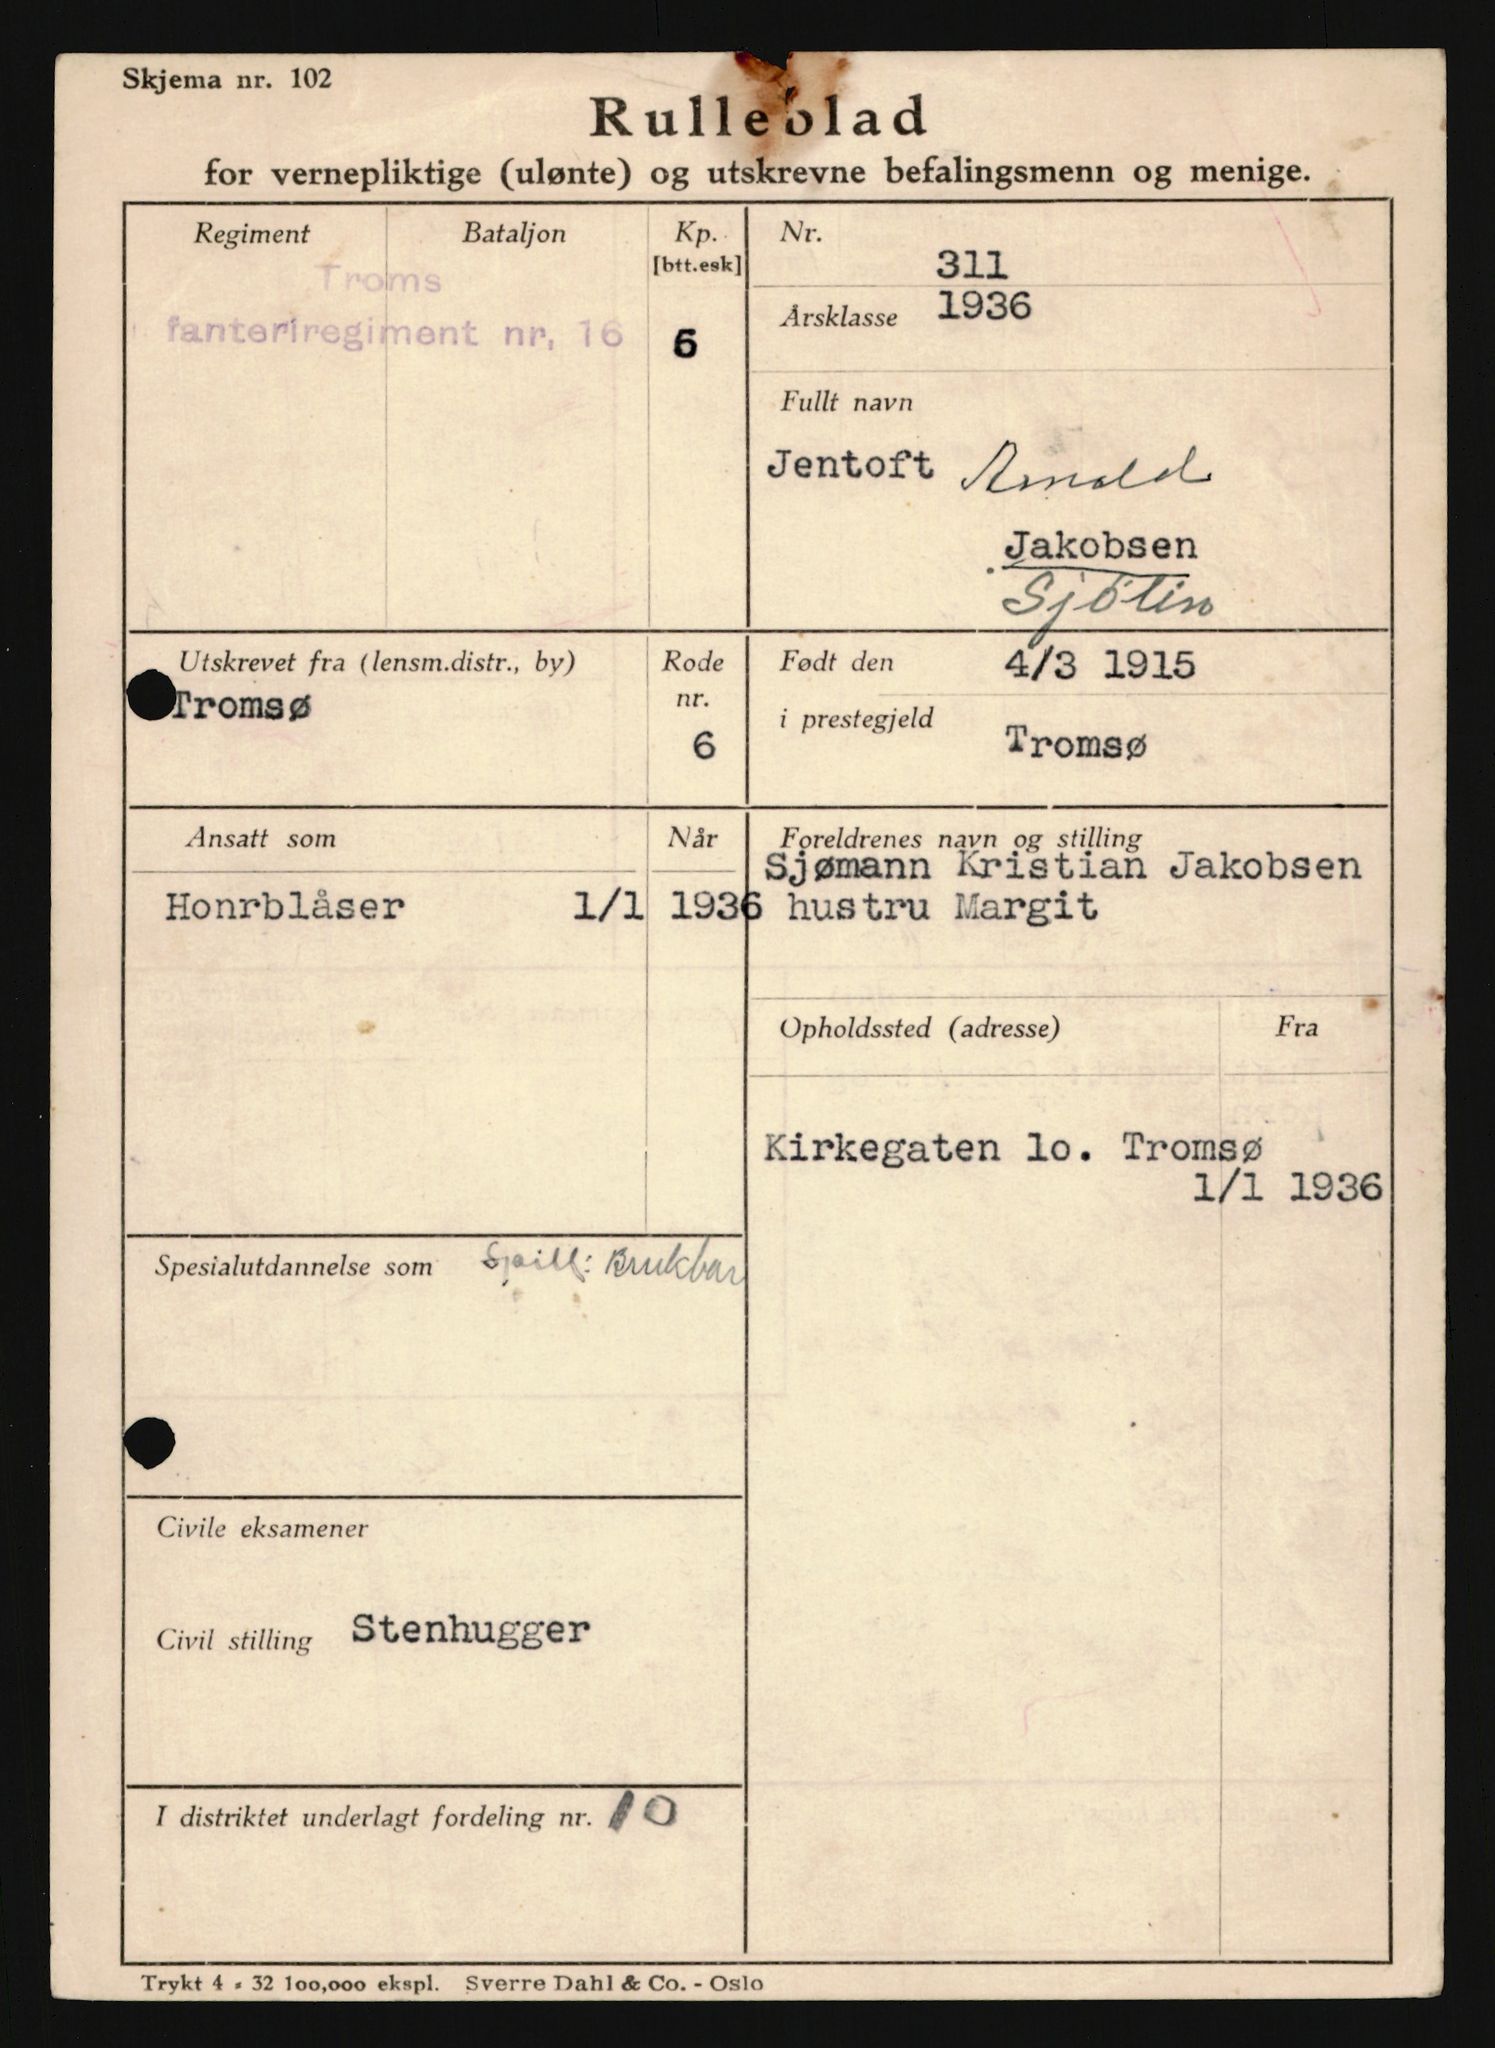 Skjema nr. 102
Rulleblad
for vernepliktige (ulønte) og utskrevne befalingsmenn og menige.
Regiment
Bataljon
Kp.
[btt.esk]
Troms
fanteriregiment nr. 16
6
Nr.
311
Årsklasse 1936
Fullt navn
Jentoft Arnold
Jakobsen
Sjötin
Utskrevet fra (lensm.distr., by)
Tromsø
Rode
nr.
6
Født den 4/3 1915
i prestegjeld
Tromsø
Ansatt som
Når
Honrblåser 1/1 1936
Foreldrenes navn og stilling
Sjømann Kristian Jakobsen
hustru Margit
Opholdssted (adresse)
Fra
Kirkegaten 1o. Tromsø
1/1 1936
Spesialutdannelse som Spill: Brukbar
Civile eksamener
Civil stilling Stenhugger
I distriktet underlagt fordeling nr. 10
Trykt 4 - 32 100,000 ekspl. Sverre Dahl & Co. - Oslo